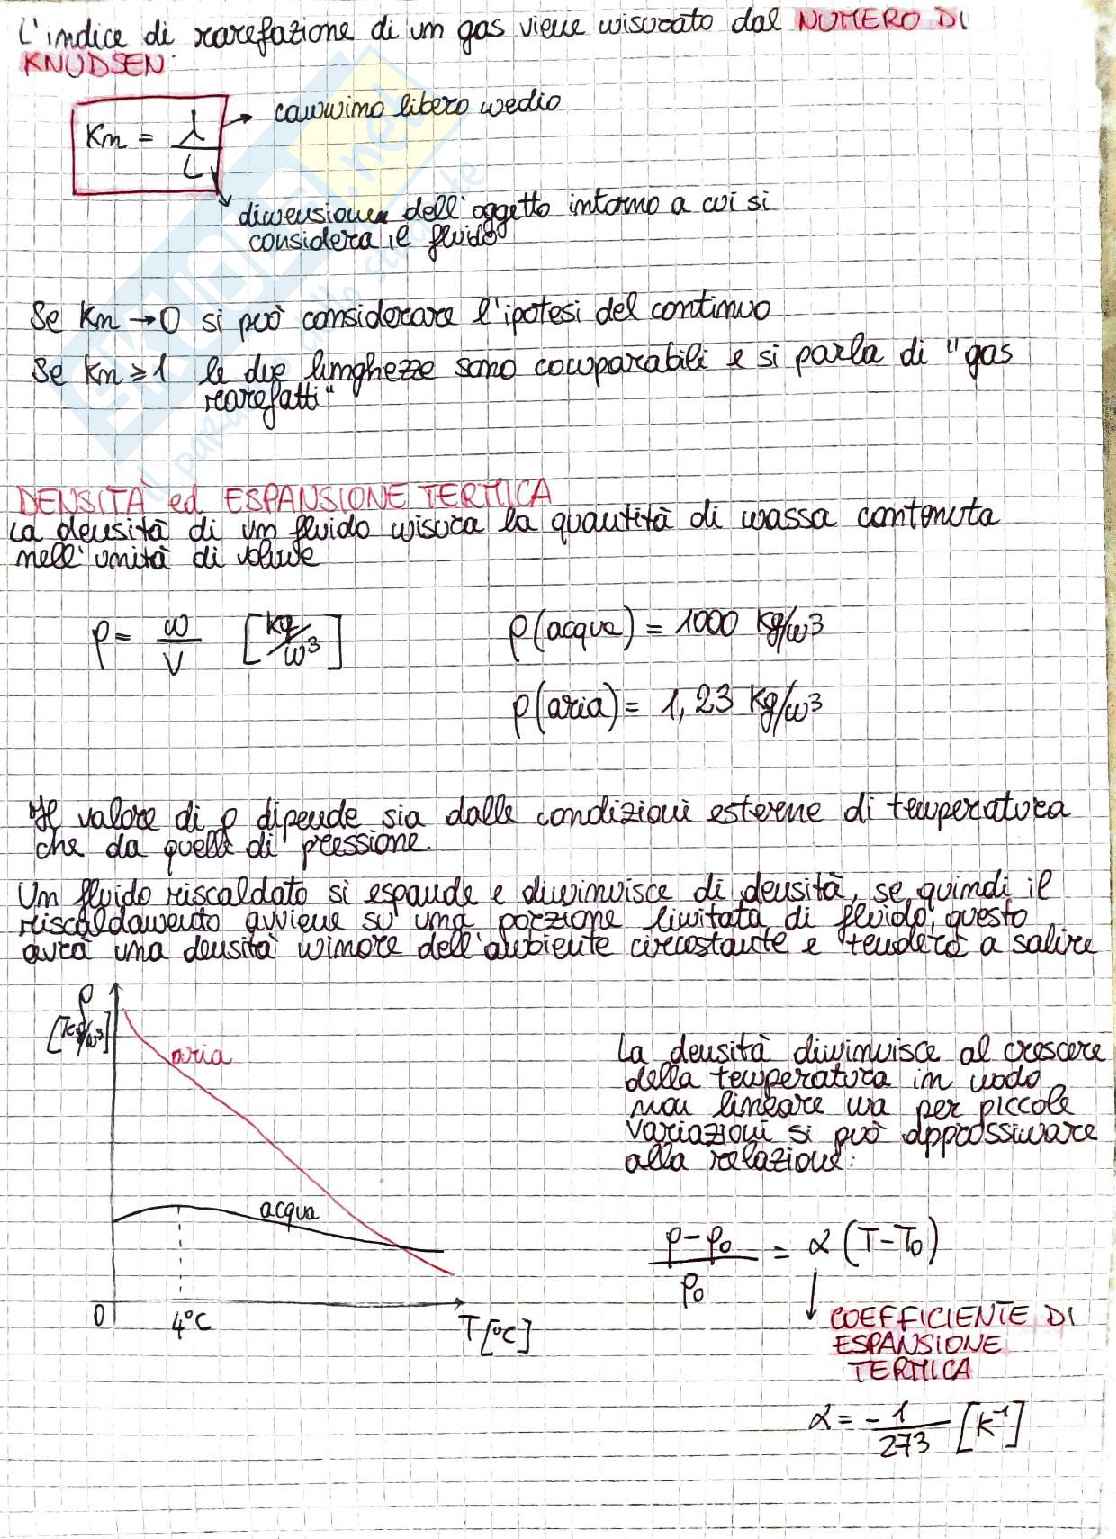 L'indice di rarefazione di un gas viene misurato dal NUMERO DI
KNUDSEN:
Kn = λ/L
→ cammino libero medio
dimensione dell'oggetto intorno a cui si
considera il fluido
Se Kn → 0 si può considerare l'ipotesi del continuo
Se Kn ≥ 1 le due lunghezze sono comparabili e si parla di "gas
rarefatti"
DENSITÀ ed ESPANSIONE TERMICA
La densità di un fluido misura la quantità di massa contenuta
nell'unità di volume
ρ = m/V [kg/m³]
ρ(acqua) = 1000 kg/m³
ρ(aria) = 1,23 kg/m³
Il valore di ρ dipende sia dalle condizioni esterne di temperatura
che da quelle di pressione.
Un fluido riscaldato si espande e diminuisce di densità, se quindi il
riscaldamento avviene su una porzione limitata di fluido, questo
avrà una densità minore dell'ambiente circostante e tenderà a salire
ρ
[kg/m³]
aria
acqua
0
4°C
T[°C]
La densità diminuisce al crescere
della temperatura in modo
non lineare ma per piccole
variazioni si può approssimare
alla relazione:
ρ-ρ₀/ρ₀ = α (T-T₀)
COEFFICIENTE DI
ESPANSIONE
TERMICA
α = -1/273 [K⁻¹]